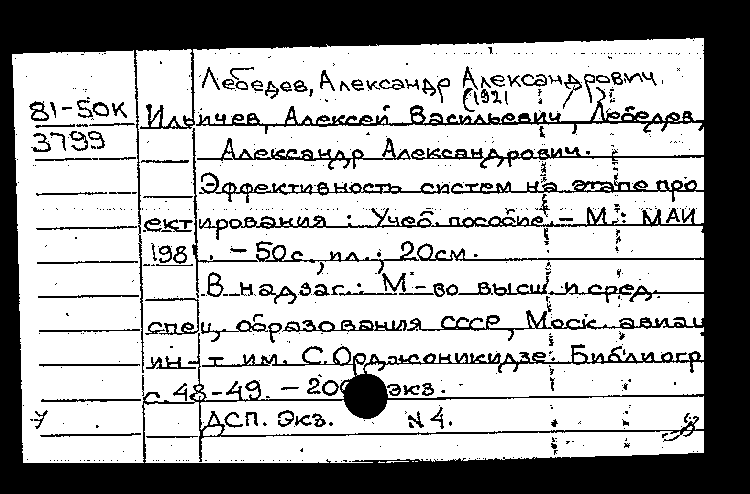 Лебедев, Александр Александрович
(1921 )
81-50К Ильичев, Алексей Васильевич, Лебедев,
3799
Александр Александрович.
Эффективность систем на этапе про
ектирования : Учеб. пособие. - М. : МАИ,
1981. - 50 с., ил. ; 20см.
В надзаг.: М-во высш. и сред.
спец. образования СССР, Моск. авиац
ин-т им. С. Орджоникидзе. Библиогр
с. 48-49. - 200 экз.
ДСП. Экз. N 4.